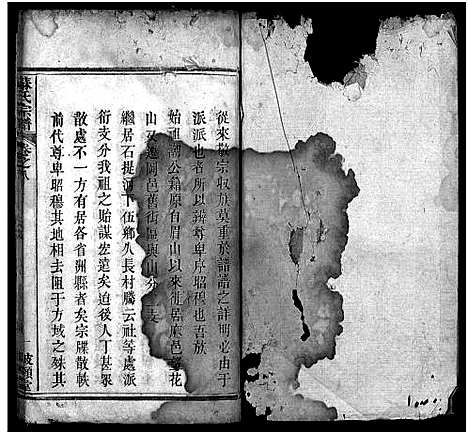 從來敬宗收族莫重於譜譜之詳明必由于
派派也者所以辨尊卑序昭穆也吾族
始祖 公籍原自眉山以來徙居麻邑 花
山 遷岡邑舊街 與山分 支
繼居石提河下伍鄉久長村騰云社等處派
衍支分我祖之貽謀宏遠矣迨後人丁甚眾
散處不一方有居各省洲縣者矣宗牒散軼
前代尊卑昭穆其地相去阻于方域之殊其
氏宗譜 卷之八